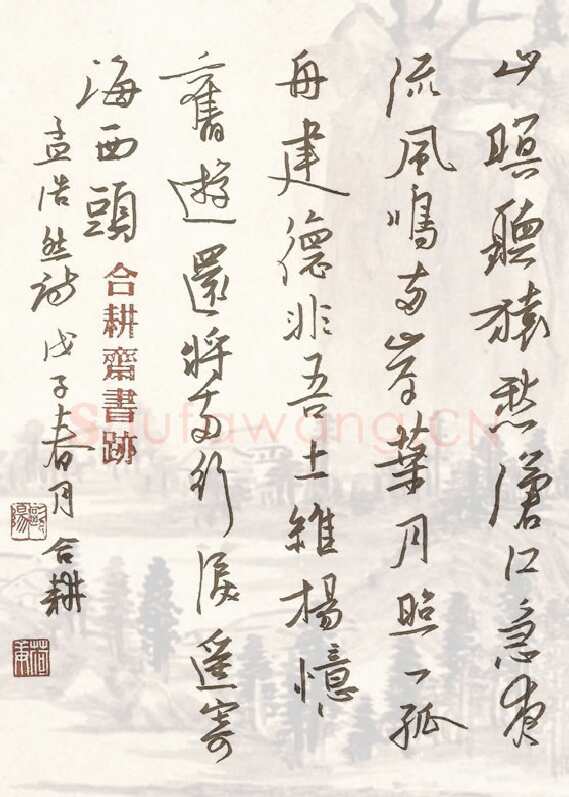 山暝聽猿愁滄江急夜
流風鳴兩岸葉月照一孤
舟建德非吾土維揚憶
舊遊還將兩行淚遙寄
海西頭
孟浩然詩戊子春月合耕
合耕齋書跡
歐陽
Shufawang.CN